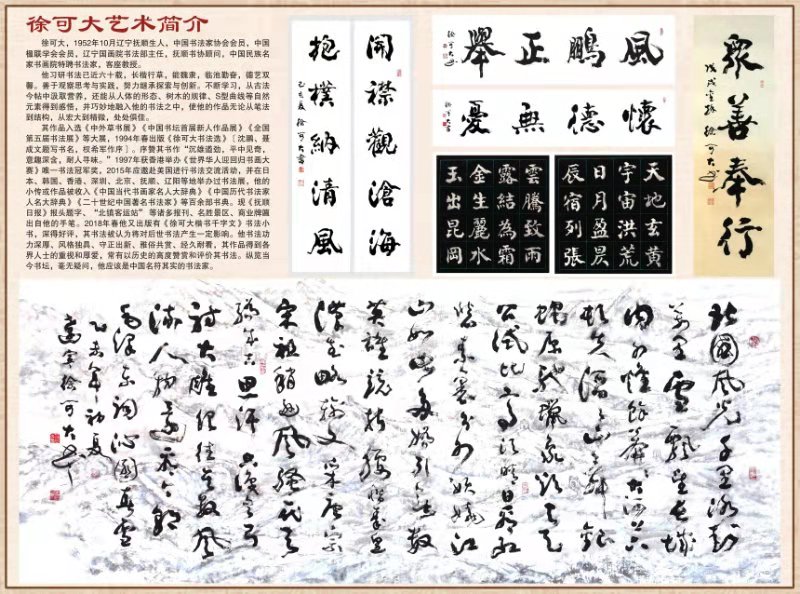 徐可大艺术简介
徐可大，1952年10月辽宁抚顺生人，中国书法家协会会员，中国
楹联学会会员，辽宁国画院书法部主任，抚顺书协顾问，中国民族名
家书画院特聘书法家，客座教授。
他习研书法已近六十载，长楷行草，能魏隶，临池勤奋，德艺双
馨。善于观察思考与实践，努力继承探索与创新。不断学习，从古法
今帖中汲取营养，还能从人体的形态、树木的规律、S型曲线等自然
元素得到感悟，并巧妙地融入他的书法之中，使他的作品无论从笔法
到结构，从宏大到精微，处处俱佳。
其作品入选《中外草书展》《中国书坛首展新人作品展》《全国
第五届书法展》等大展，1994年春出版《徐可大书法选》〔沈鹏、聂
成文题写书名，权希军作序〕。序赞其书作“沉雄遒劲，平中见奇，
意趣深含，耐人寻味。”1997年获香港举办《世界华人迎回归书画大
赛》唯一书法冠军奖，2015年应邀赴美国进行书法交流活动，并在日
本、韩国、香港、深圳、北京、抚顺、辽阳等地举办过书法展，他的
小传或作品被收入《中国当代书画家名人大辞典》《中国历代书法家
人名大辞典》《二十世纪中国著名书法家》等百余部书典。现《抚顺
日报》报头题字、“北镇客运站” 等诸多报刊、名胜景区、商业牌匾
出自他的手笔。2018年春他又出版有《徐可大楷书千字文》书法小
书，深得好评，其书法被认为将对后世书法产生一定影响。他书法功
力深厚、风格独具、守正出新、雅俗共赏、经久耐看，其作品得到各
界人士的重视和厚爱，常有以历史的高度赞赏和评价其书法。纵览当
今书坛，毫无疑问，他应该是中国名符其实的书法家。
開襟觀滄海
抱樸納清風
徐可大書
風鵬正舉
徐可大書
懷德無憂
徐可大書
天地玄黄
宇宙洪荒
日月盈昃
辰宿列張
雲騰致雨
露結為霜
金生麗水
玉出崑岡
眾善奉行
戊戌
徐可大書
北國風光千里冰封
萬里雪飄望長城
內外惟餘莽莽大河上下
頓失滔滔山舞銀
蛇原馳蠟象欲與天
公試比高須晴日看紅
裝素裹分外妖嬈江
山如此多嬌引無數
英雄競折腰惜秦皇
漢武略輸文采唐宗
宋祖稍遜風騷一代天
驕成吉思汗只識彎弓
射大雕俱往矣數風
流人物還看今朝
毛澤東詞沁園春雪
乙未年初夏
徐可大書